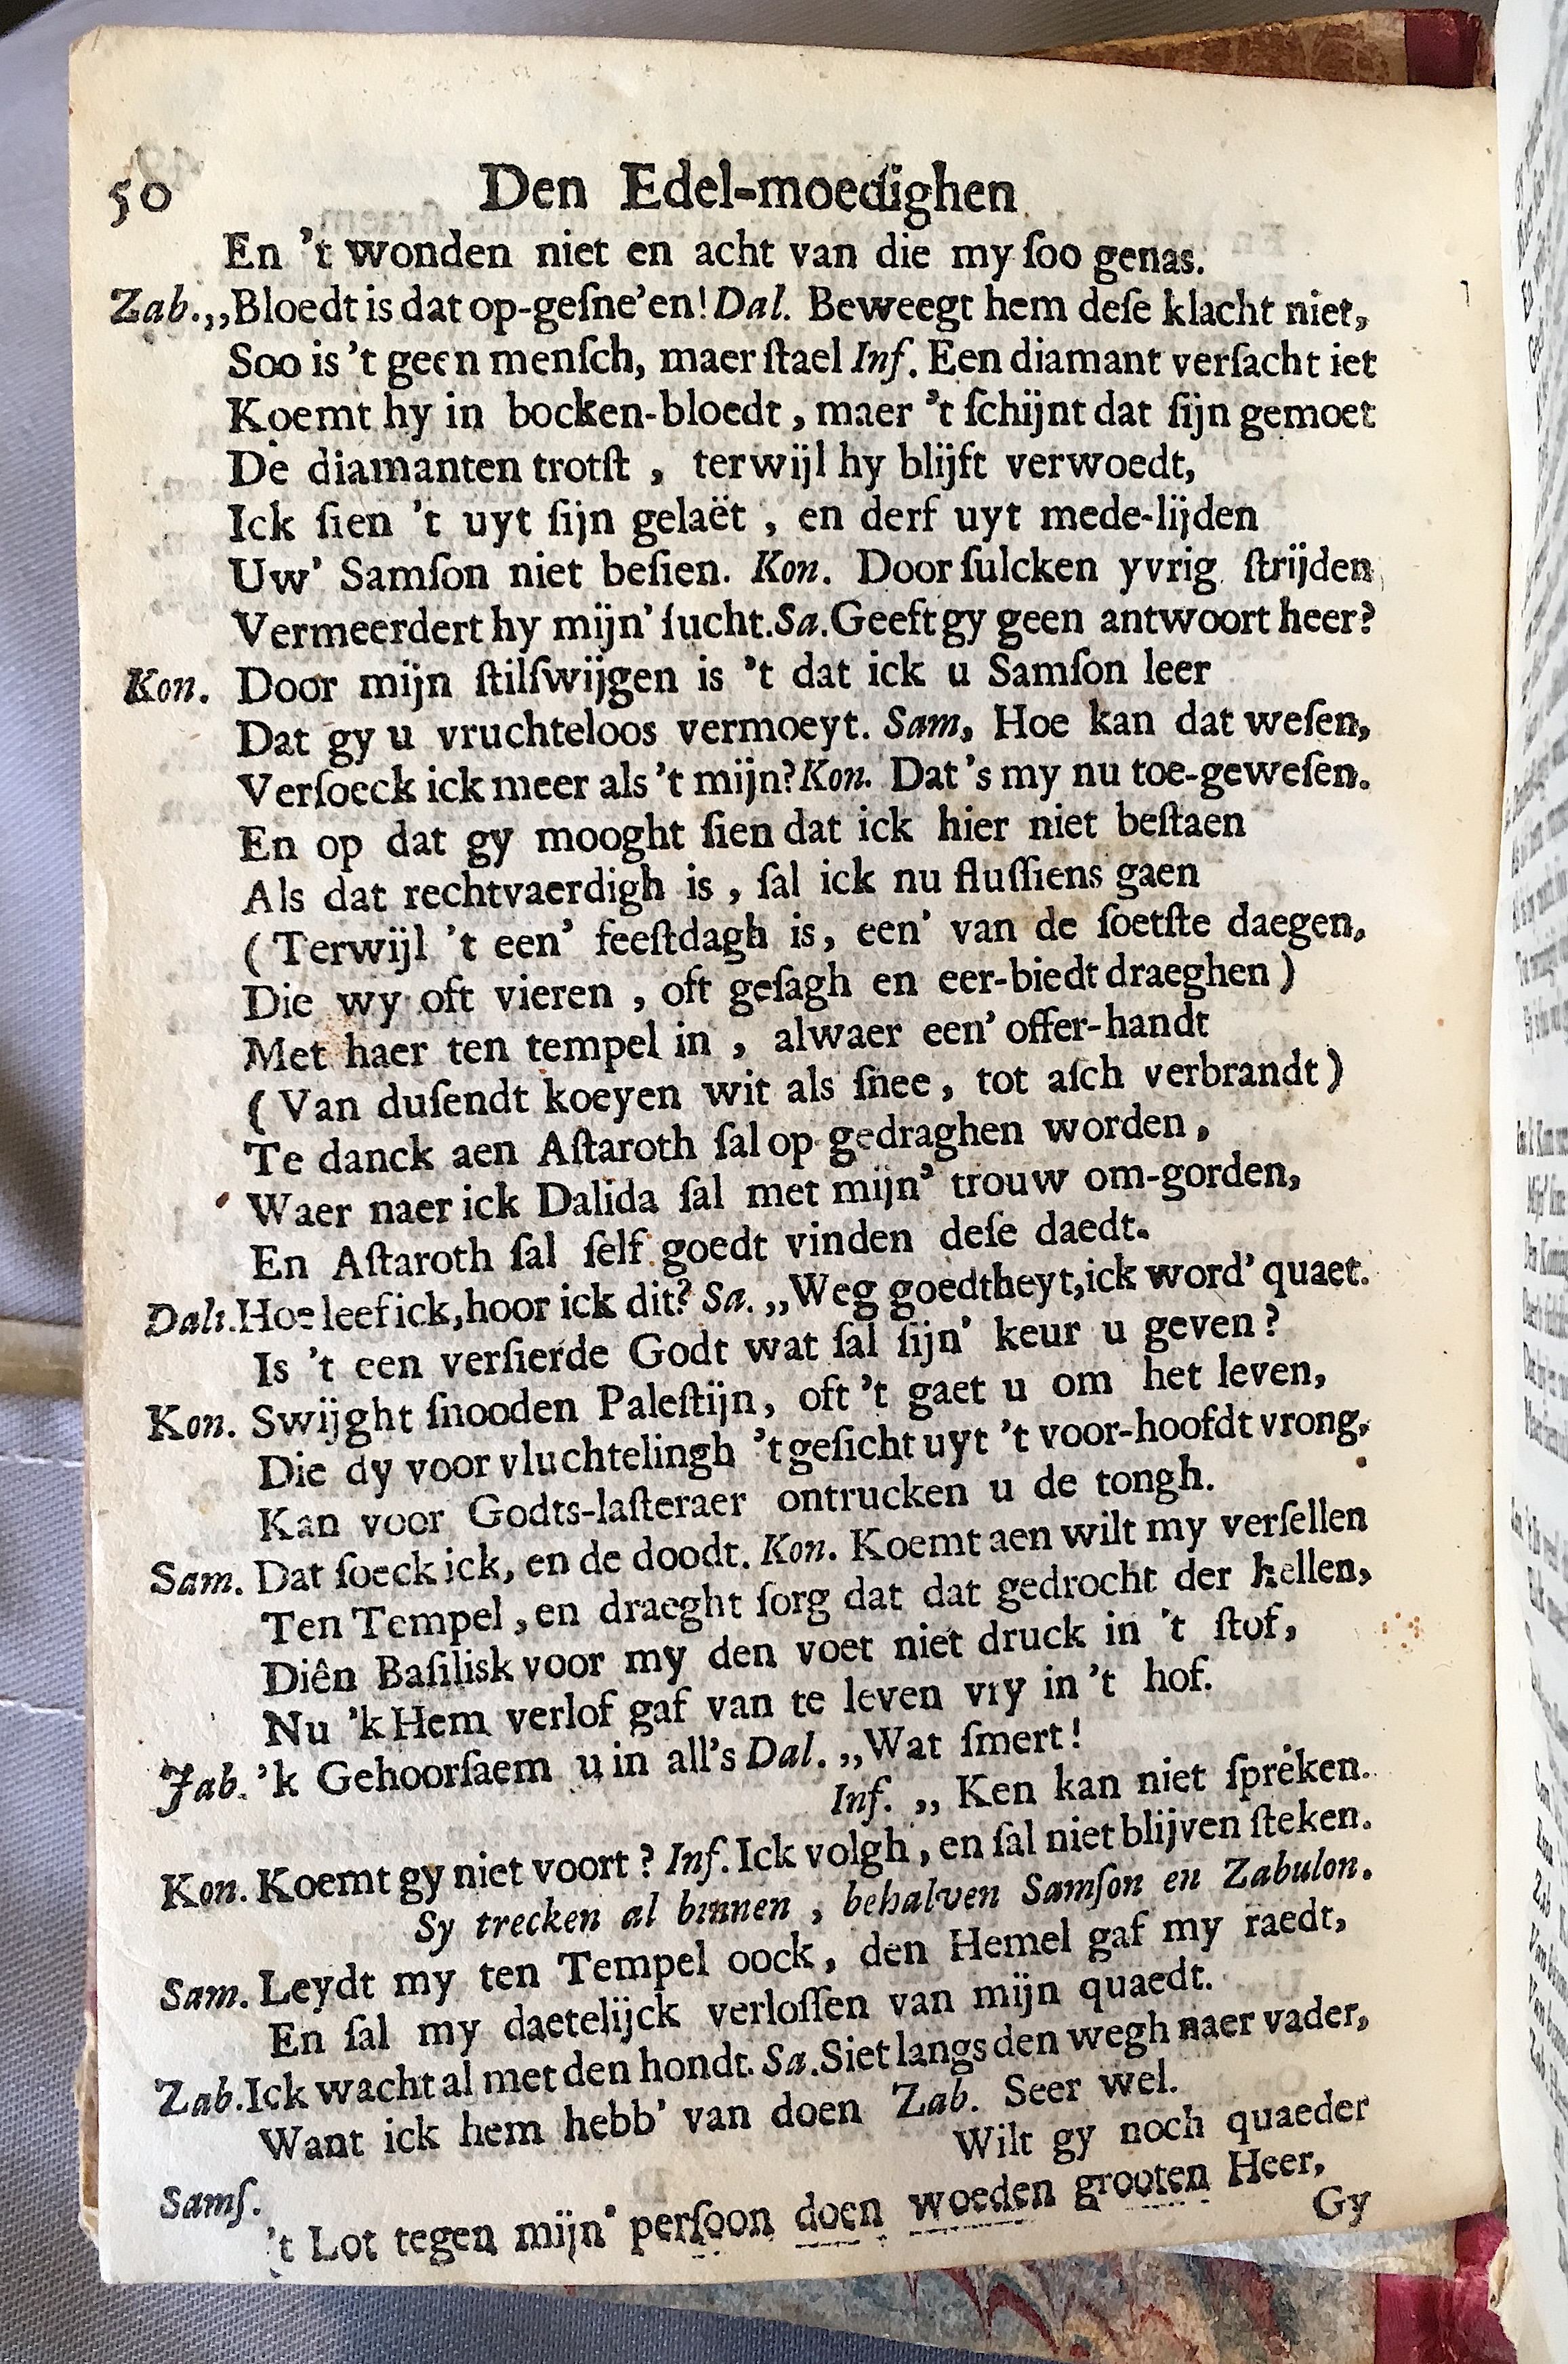 50 Den Edel-moedighen
En 't wonden niet en acht van die my ſoo genas.
Zab.,,Bloedt is dat op-geſne'en! Dal. Beweegt hem deſe klacht niet,
Soo is 't geen menſch, maer ſtael Inſ. Een diamant verſacht iet
Koemt hy in bocken-bloedt, maer 't ſchijnt dat ſijn gemoet
De diamanten trotſt, terwijl hy blijft verwoedt,
Ick ſien 't uyt ſijn gelaët, en derf uyt mede-lijden
Uw' Samſon niet beſien. Kon. Door ſulcken yvrig ſtrijden
Vermeerdert hy mijn' ſucht. Sa. Geeft gy geen antwoort heer?
Kon. Door mijn ſtilſwijgen is 't dat ick u Samſon leer
Dat gy u vruchteloos vermoeyt. Sam, Hoe kan dat weſen,
Verſoeck ick meer als 't mijn? Kon. Dat 's my nu toe-geweſen.
En op dat gy mooght ſien dat ick hier niet beſtaen
Als dat rechtvaerdigh is, ſal ick nu fluſſiens gaen
(Terwijl 't een' feeſtdagh is, een' van de ſoetſte daegen,
Die wy oft vieren, oft geſagh en eer-biedt draeghen)
Met haer ten tempel in, alwaer een' offer-handt
(Van duſendt koeyen wit als ſnee, tot aſch verbrandt)
Te danck aen Aſtaroth ſal op gedraghen worden,
Waer naer ick Dalida ſal met mijn' trouw om-gorden,
En Aſtaroth ſal ſelf goedt vinden deſe daedt.
Dali. Hoe leef ick, hoor ick dit? Sa. ,,Weg goedtheyt, ick word' quaet.
Is 't een verſierde Godt wat ſal ſijn' keur u geven?
Kon. Swijght ſnooden Paleſtijn, oft 't gaet u om het leven,
Die dy voor vluchtelingh 't geſicht uyt 't voor-hoofdt vrong,
Kan voor Godts-laſteraer ontrucken u de tongh.
Sam. Dat ſoeck ick, en de doodt. Kon. Koemt aen wilt my verſellen
Ten Tempel, en draeght ſorg dat dat gedrocht der hellen,
Diên Baſilisk voor my den voet niet druck in 't ſtof,
Nu 'k Hem verlof gaf van te leven vry in 't hof.
Jab. 'k Gehoorſaem u in all's Dal. ,,Wat ſmert!
Inſ. ,, Ken kan niet ſpreken.
Kon. Koemt gy niet voort? Inſ. Ick volgh, en ſal niet blijven ſteken.
Sy trecken al binnen, behalven Samſon en Zabulon.
Sam. Leydt my ten Tempel oock, den Hemel gaf my raedt,
En ſal my daetelijck verloſſen van mijn quaedt.
Zab. Ick wacht al met den hondt. Sa. Siet langs den wegh naer vader,
Want ick hem hebb' van doen Zab. Seer wel.
Samſ. Wilt gy noch quaeder
't Lot tegen mijn' perſoon doen woeden grooten Heer,
Gy